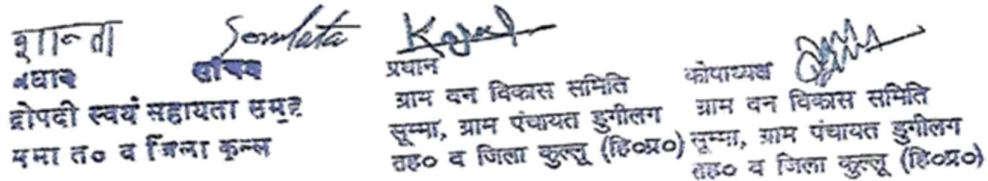 शान्ता
प्रधान
सचिव
द्रोपदी स्वयं सहायता समुह
त० व जिला कुल्लू
Somlata
प्रधान
ग्राम वन विकास समिति
सूम्मा, ग्राम पंचायत डुगीलग
तह० व जिला कुल्लू (हि०प्र०)
कोषाध्यक्ष
ग्राम वन विकास समिति
सूम्मा, ग्राम पंचायत डुगीलग
तह० व जिला कुल्लू (हि०प्र०)